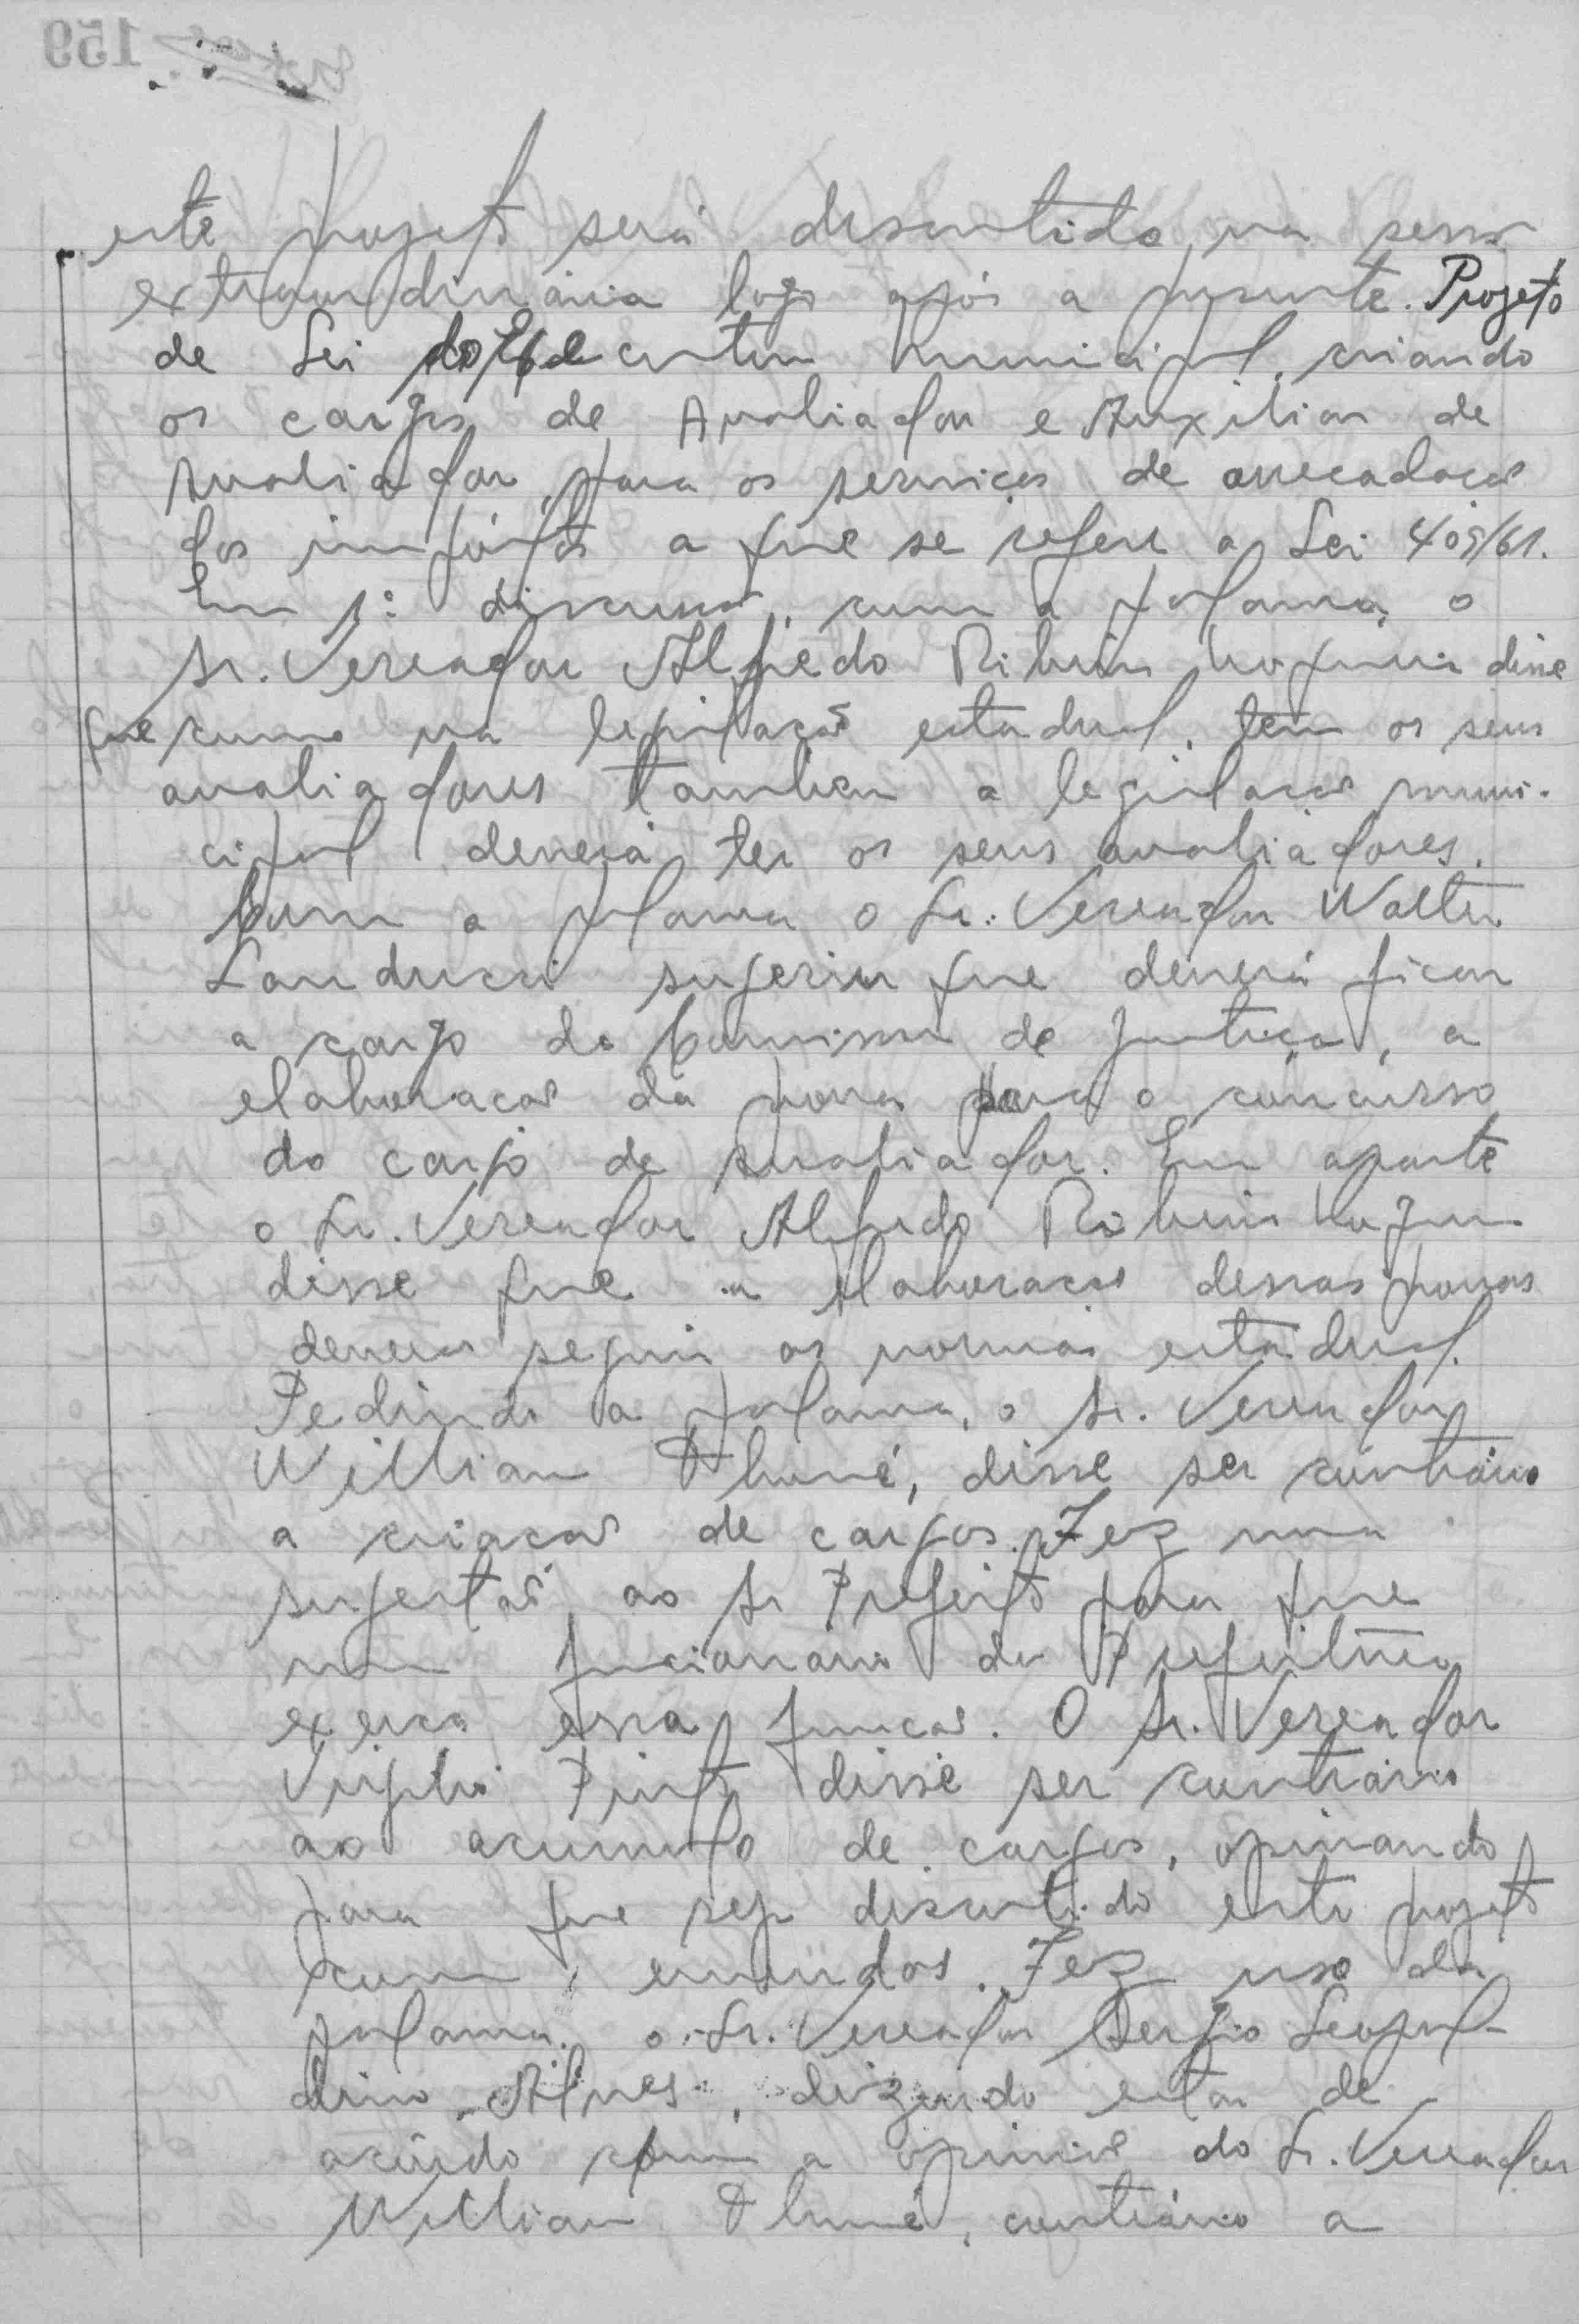 este projeto será discutido, na sessão
extraordinária logo após a presente. Projeto
de Lei do Executivo municipal, criando
os cargos de Avaliador e Auxiliar de
Avaliador, para os serviços de arrecadação
dos impostos a que se refere a Lei 409/61.
Em 1ª discussão, com a palavra, o
Sr. Vereador Alfredo Ribeiro disse
que como na legislação estadual, tem os seus
avaliadores tambem a legislação muni-
cipal deverá ter os seus avaliadores.
Com a palavra o Sr. Vereador Walter
Landucci sugeriu que deverá ficar
a cargo da Comissão de Justiça, a
elaboração da prova para o concurso
do cargo de Avaliador. Em aparte
o Sr. Vereador Alfredo Ribeiro
disse que a elaboração dessas provas
deverá seguir as normas estadual.
Pedindo a palavra, o Sr. Vereador
Willian Thomé, disse ser contrário
a criação de cargos. Fez uma
sugestão ao Sr Prefeito para que
um funcionário da Prefeitura
exerça essa função. O Sr. Vereador
Virgilio Pinto disse ser contrário
ao acumulo de cargos, opinando
para que seja discutido este projeto
com emendas. Fez uso da
palavra o Sr. Vereador Sergio Leopol-
dino Alves, dizendo estar de
acôrdo com a opinião do Sr. Vereador
Willian Thomé, contrário a